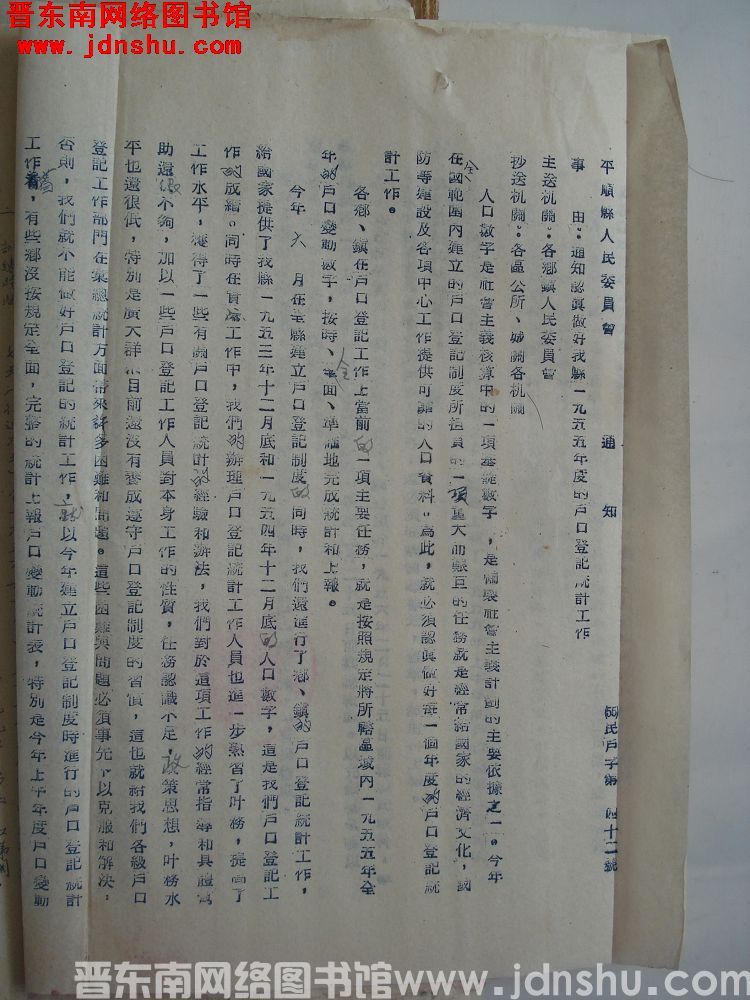 晋东南网络图书馆
www.jdnshu.com
平順縣人民委員會 通知 (55)民戶字第四十二號
事由:通知認真做好我縣一九五五年度的戶口登記統計工作
主送机關:各鄉鎮人民委員會
抄送机關:各區公所、城關各机關
人口數字是社會主義核算中的一項基礎數字,是編製社會主義計劃的主要依據之一。今年
在全國範圍內建立的戶口登記制度所担負的一項重大而艱巨的任務就是經常給國家的經濟文化,國
防等建設及各項中心工作提供可靠的人口資料。為此,就必須認真做好每一個年度的戶口登記統
計工作。
各鄉、鎮在戶口登記工作上當前的一項主要任務,就是按照規定將所轄區域內一九五五年全
年的戶口變動數字,按時、全面、準確地完成統計和上報。
今年六月在全縣建立戶口登記制度的同時,我們還進行了鄉、鎮的戶口登記統計工作,
給國家提供了我縣一九五三年十二月底和一九五四年十二月底的人口數字,這是我們戶口登記工
作的成績。同時在實際工作中,我們的辦理戶口登記統計工作人員也進一步熟習了叶務,提高了
工作水平,獲得了一些有關戶口登記統計的經驗和辦法,我們對於這項工作的經常指導和具體幫
助還做不夠,加以一些戶口登記工作人員對本身工作的性質,任務認識不足,政策思想,叶務水
平也還很低,特別是廣大群眾目前還沒有養成遵守戶口登記制度的習慣,這也就給我們各級戶口
登記工作部門在彙總統計方面帶來許多困難和問題。這些困難與問題必須事先予以克服和解決,
否則,我們就不能做好戶口登記的統計工作,就以今年建立戶口登記制度時進行的戶口登記統計
工作看,有些鄉沒按規定全面,完整的統計上報戶口變動統計表,特別是今年上半年度戶口變動
晋东南网络图书馆www.jdnshu.com